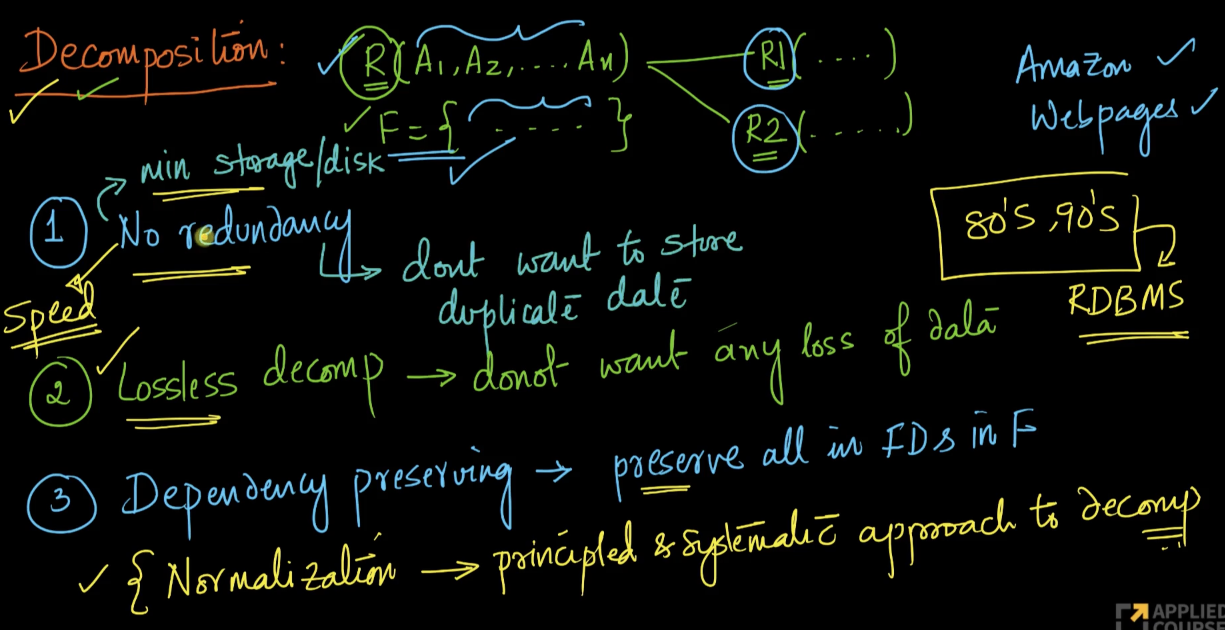 Decomposition: R(A1, A2, .... An) R1(....)
F = { ..... } R2(.....)
Amazon
Webpages
min storage/disk
1 No redundancy
dont want to store
duplicate data
80's, 90's
RDBMS
Speed
2 Lossless decomp → donot want any loss of data
3 Dependency preserving → preserve all in FDs in F
{ Normalization → principled & systematic approach to decomp
APPLIED
COURSE